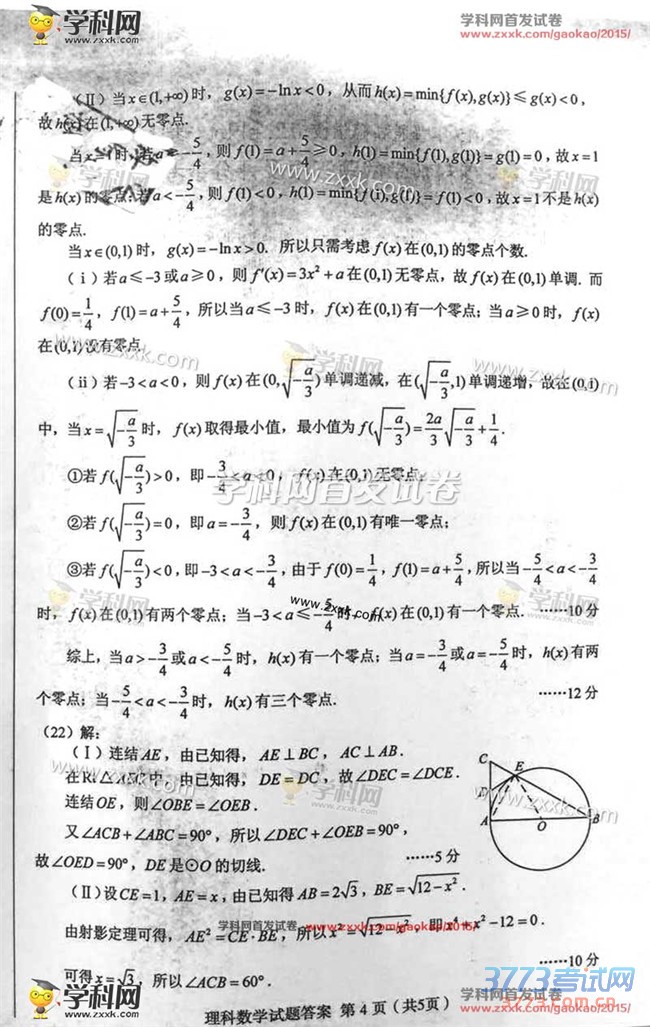 学科网
www.zxxk.com
学科网首发试卷
www.zxxk.com/gaokao/2015/
（Ⅱ）当x∈(1,+∞)时，g(x)=−ln x<0，从而h(x)=min{f(x),g(x)}≤g(x)<0，
故h(x)在(1,+∞)无零点.
当x=1时，若a≥−5/4，则f(1)=a+5/4≥0，h(1)=min{f(1),g(1)}=g(1)=0，故x=1
是h(x)的零点;若a<−5/4，则f(1)<0，h(1)=min{f(1),g(1)}=f(1)<0，故x=1不是h(x)
的零点.
当x∈(0,1)时，g(x)=−ln x>0. 所以只需考虑f(x)在(0,1)的零点个数.
（ⅰ）若a≤−3或a≥0，则f′(x)=3x²+a在(0,1)无零点，故f(x)在(0,1)单调. 而
f(0)=1/4，f(1)=a+5/4，所以当a≤−3时，f(x)在(0,1)有一个零点；当a≥0时，f(x)
在(0,1)没有零点.
（ⅱ）若−3<a<0，则f(x)在(0,√(−a/3))单调递减，在(√(−a/3),1)单调递增，故在(0,1)
中，当x=√(−a/3)时，f(x)取得最小值，最小值为f(√(−a/3))=2a/3√(−a/3)+1/4.
①若f(√(−a/3))>0，即−3/4<a<0，f(x)在(0,1)无零点；
②若f(√(−a/3))=0，即a=−3/4，则f(x)在(0,1)有唯一零点；
③若f(√(−a/3))<0，即−3<a<−3/4，由于f(0)=1/4，f(1)=a+5/4，所以当−5/4<a<−3/4
时，f(x)在(0,1)有两个零点；当−3<a≤−5/4时，f(x)在(0,1)有一个零点. ······10分
综上，当a>−3/4或a<−5/4时，h(x)有一个零点；当a=−3/4或a=−5/4时，h(x)有两
个零点；当−5/4<a<−3/4时，h(x)有三个零点. ······12分
（22）解：
（Ⅰ）连结AE，由已知得，AE⊥BC，AC⊥AB.
在Rt△AEC中，由已知得，DE=DC，故∠DEC=∠DCE.
连结OE，则∠OBE=∠OEB.
又∠ACB+∠ABC=90°，所以∠DEC+∠OEB=90°，
故∠OED=90°，DE是⊙O的切线. ······5分
C
E
D
A
O
B
（Ⅱ）设CE=1，AE=x，由已知得AB=2√3，BE=√(12−x²).
由射影定理可得，AE²=CE·BE，所以x²=√(12−x²)，即x⁴+x²−12=0.
可得x=√3，所以∠ACB=60°. ······10分
学科网首发试卷
www.zxxk.com/gaokao/2015/
理科数学试题答案 第4页（共5页）
学科网
www.zxxk.com
学科网首发试卷
www.zxxk.com/gaokao/2015/
3773考试网
3773.com.cn